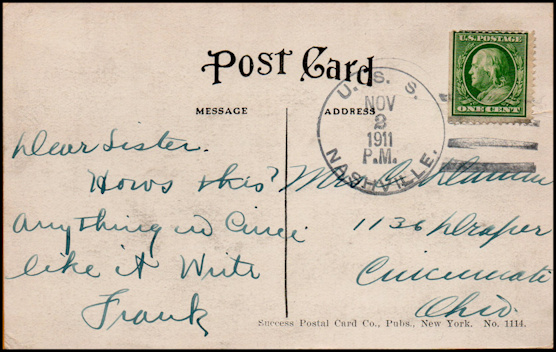 POST CARD
U.S. POSTAGE
ONE CENT
MESSAGE
ADDRESS
U. S. S.
NOV
2
1911
P.M.
NASHVILLE.
Dear Sister.
Hows this?
Anything in Cinci
like it Write
Frank
Mrs
1136 Draper
Cincinnati
Ohio.
Success Postal Card Co., Pubs., New York. No. 1114.